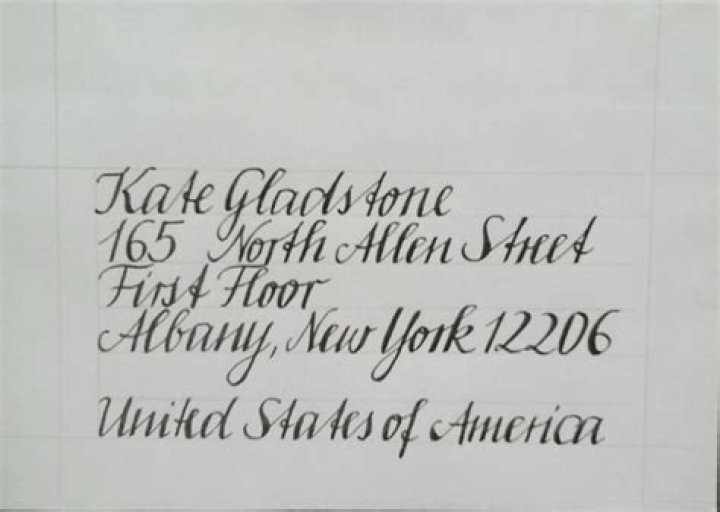 Kate Gladstone
165 North Allen Street
First Floor
Albany, New York 12206
United States of America